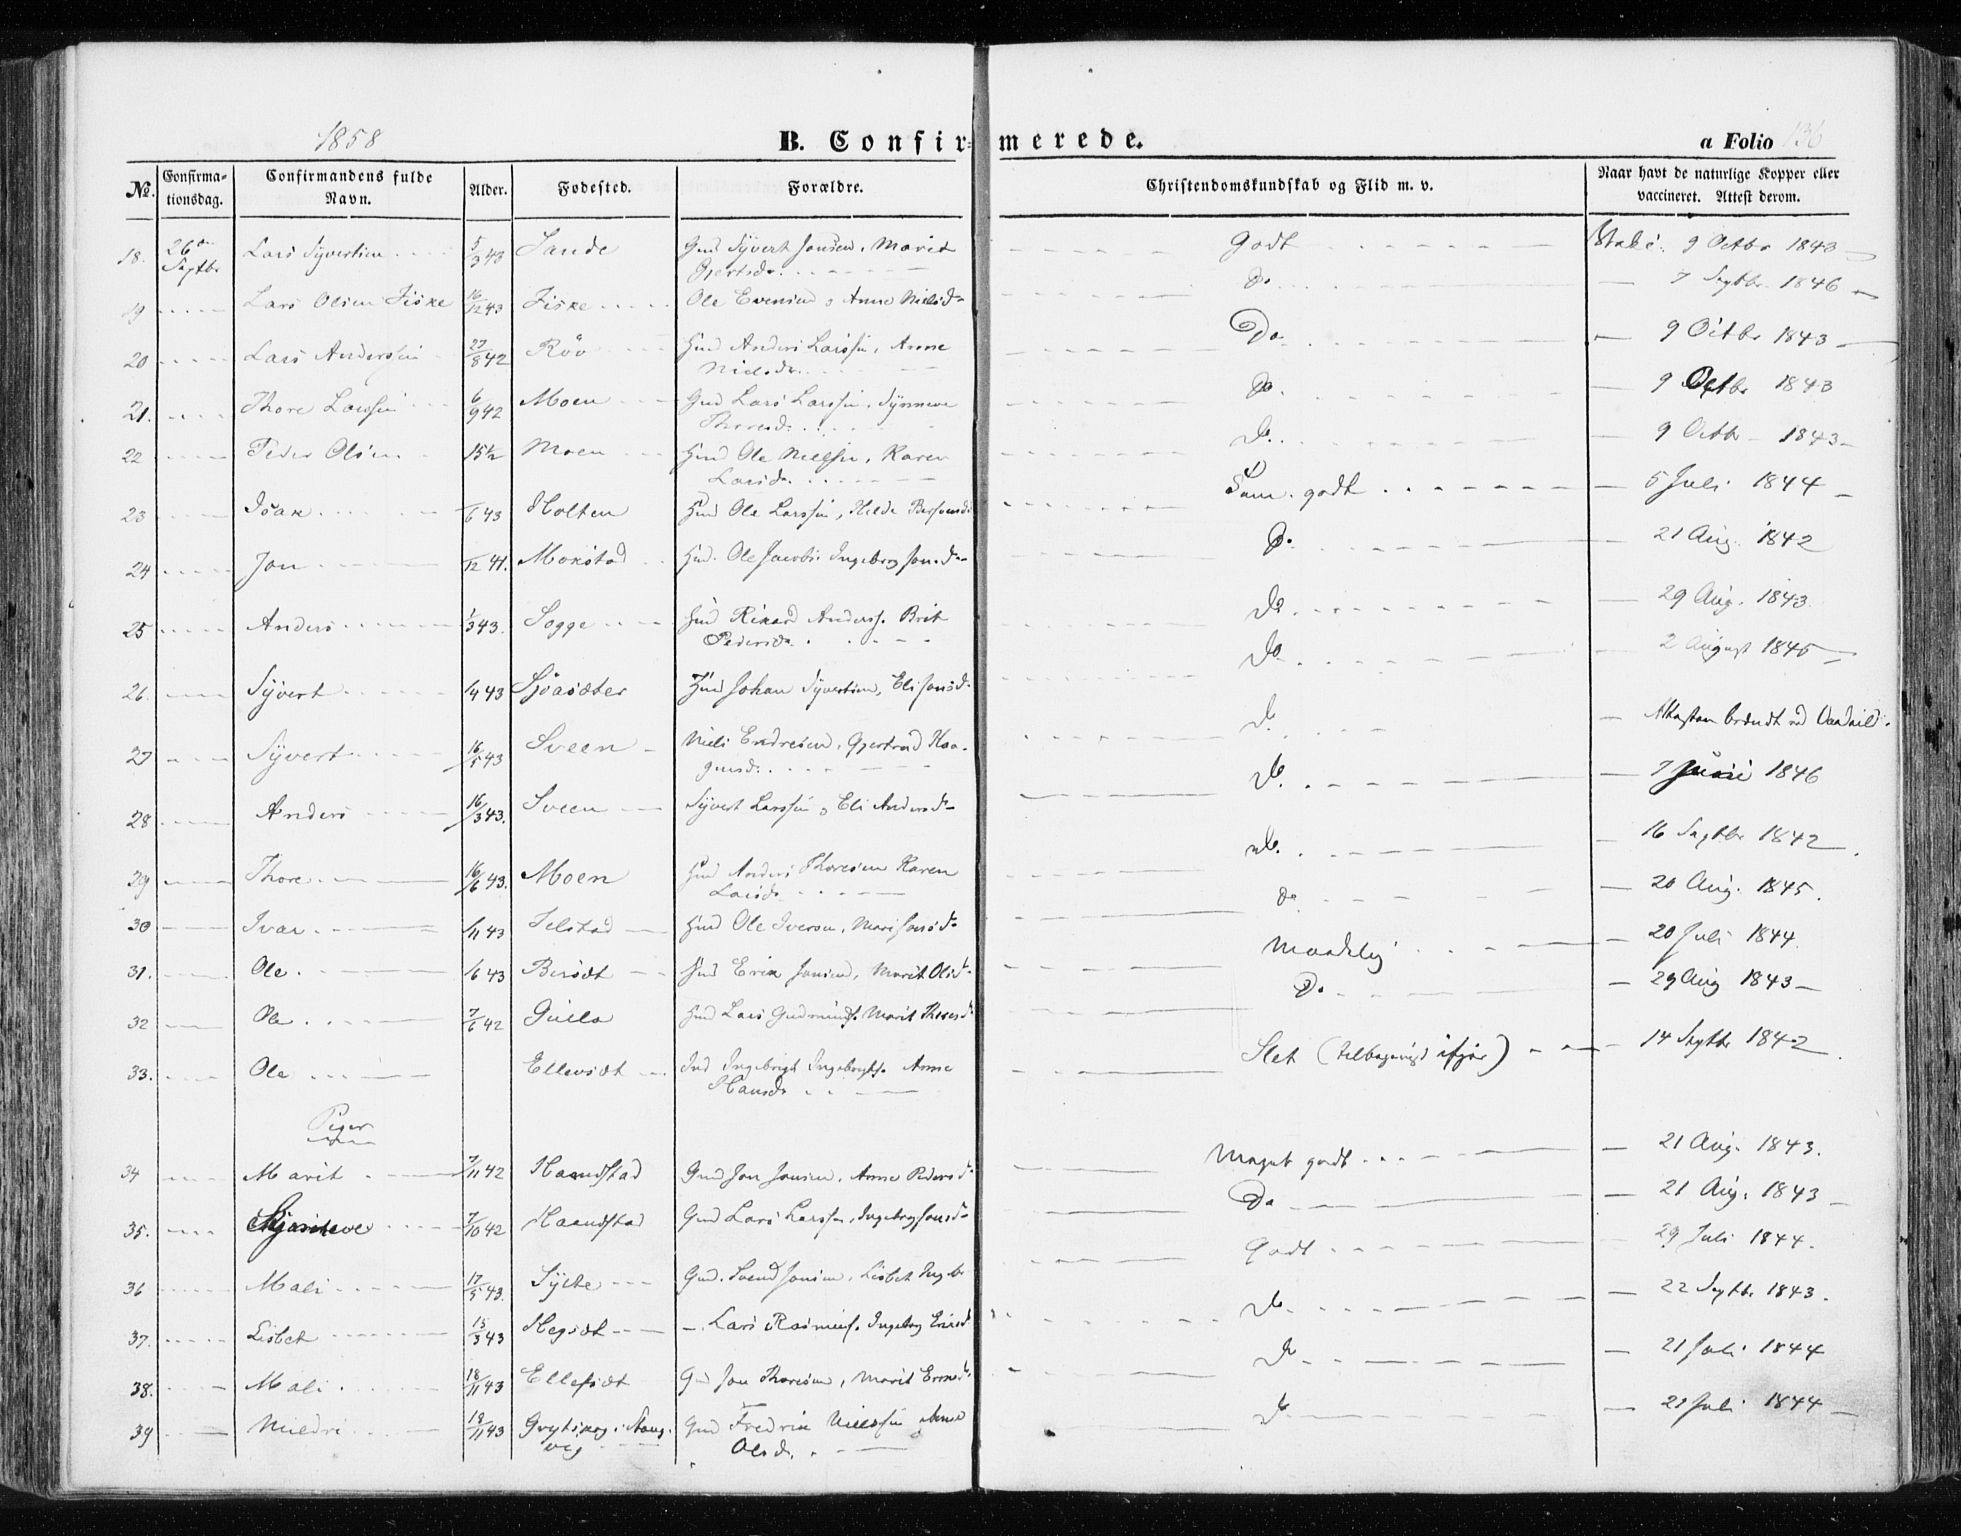 1858
B. Confirmerede.
a Folio 136
No. Confirmationsdag. Confirmandens fulde Navn. Alder. Fødested. Forældre. Christendomskundskab og Flid m. v. Naar havt de naturlige Kopper eller vaccineret. Attest derom.
18. 26de Septbr Lars Syvertsen 5/3 43 Sande Gmd Syvert Jonsen, Marit Gjertsdr. Godt 9 Octbr 1843
19 Lars Olsen Fiske 16/12 43 Fiske Ole Evensen o Anne Nielsdr Do 7 Septbr 1846
20 Lars Anderssen 27/8 42 Röv Huusmd Anders Larssen, Anne Nielsdr. Do 9 Octbr 1843
21. Thore Larssen 6/9 42 Moen Gmd Lars Larssen, Synneve Thoresdr. Do. 9 Octbr 1843
22 Peder Olsen 15½ Moen Hmd Ole Nielsen, Karen Larsdr. Do. 9 Octbr 1843
23 Isak /6 43 Holten Hmd Ole Larssen, Hilde Sam. godt 5 Juli 1844
24 Jon /12 41. Mokstad Hmd. Ole Jacobs. Ingebrg Jonsdr Do. 21 Aug. 1842
25 Anders 1/3 43. Sogge Hmd Rikard Anderss. Brit Pedersdr. Do. 29 Aug. 1843.
26. Syvert /4 43 Hmd Johan Syvertsen, Eli Jonsd. Do. 2 August 1845
27 Syvert 16/5 43 Sveen Niels Endresen, Gjertrud Haagensd. Do Attesten brændt ved Vaadeild.
28 Anders 16/3 43. Sveen Syvert Larssen o Eli Andersdr Do. 7 Juni 1846
29 Thore 16/6 43. Moen Hmd Anders Thoresen Karen Larsd. Do. 16 Septbr 1842
30 Ivar /11 43 Jelstad Hmd Ole Iversen, Mari Jonsdr Do 20 Aug. 1845.
31. Ole /6 43 Hmd Erik Jonsen, Marit Olsd. Maadelig 20 Juli 1844.
32 Ole 7/6 42 Hmd Lars Gudmunds. Marit Thoresd. Do 29 Aug 1843
33. Ole Ellevsdt Ind Ingebrigt Ingebrigts. Anne Hansd. Slet (tilbageviist ifjor) 14 Septbr 1842.
Piger
34 Marit 7/11 42 Haandstad Gmd Jon Jonsen, Anne Pedersd. Meget godt 21 Aug. 1843.
35. 7/10 42 Haandstad Gmd Lars Larssen, Ingebrg Jonsd. Do 21 Aug. 1843
36 Mali 17/5 43. Sylte Gmd. Svend Jonsen, Lisbet Ingebr Godt 29 Juli 1844.
37. Lisbet 15/3 43 Hegsdt Lars Rasmuss. Ingebrg Eriksd. Do 22 Septbr 1843.
38. Mali 18/11 43 Ellefsdt Gmd Jon Thoresen, Marit Do 21 Juli 1844
39 Mildri 18/11 43 i Stangvig Gmd Fredrik Nielssen, Anne Olsd. Do 21 Juli 1844